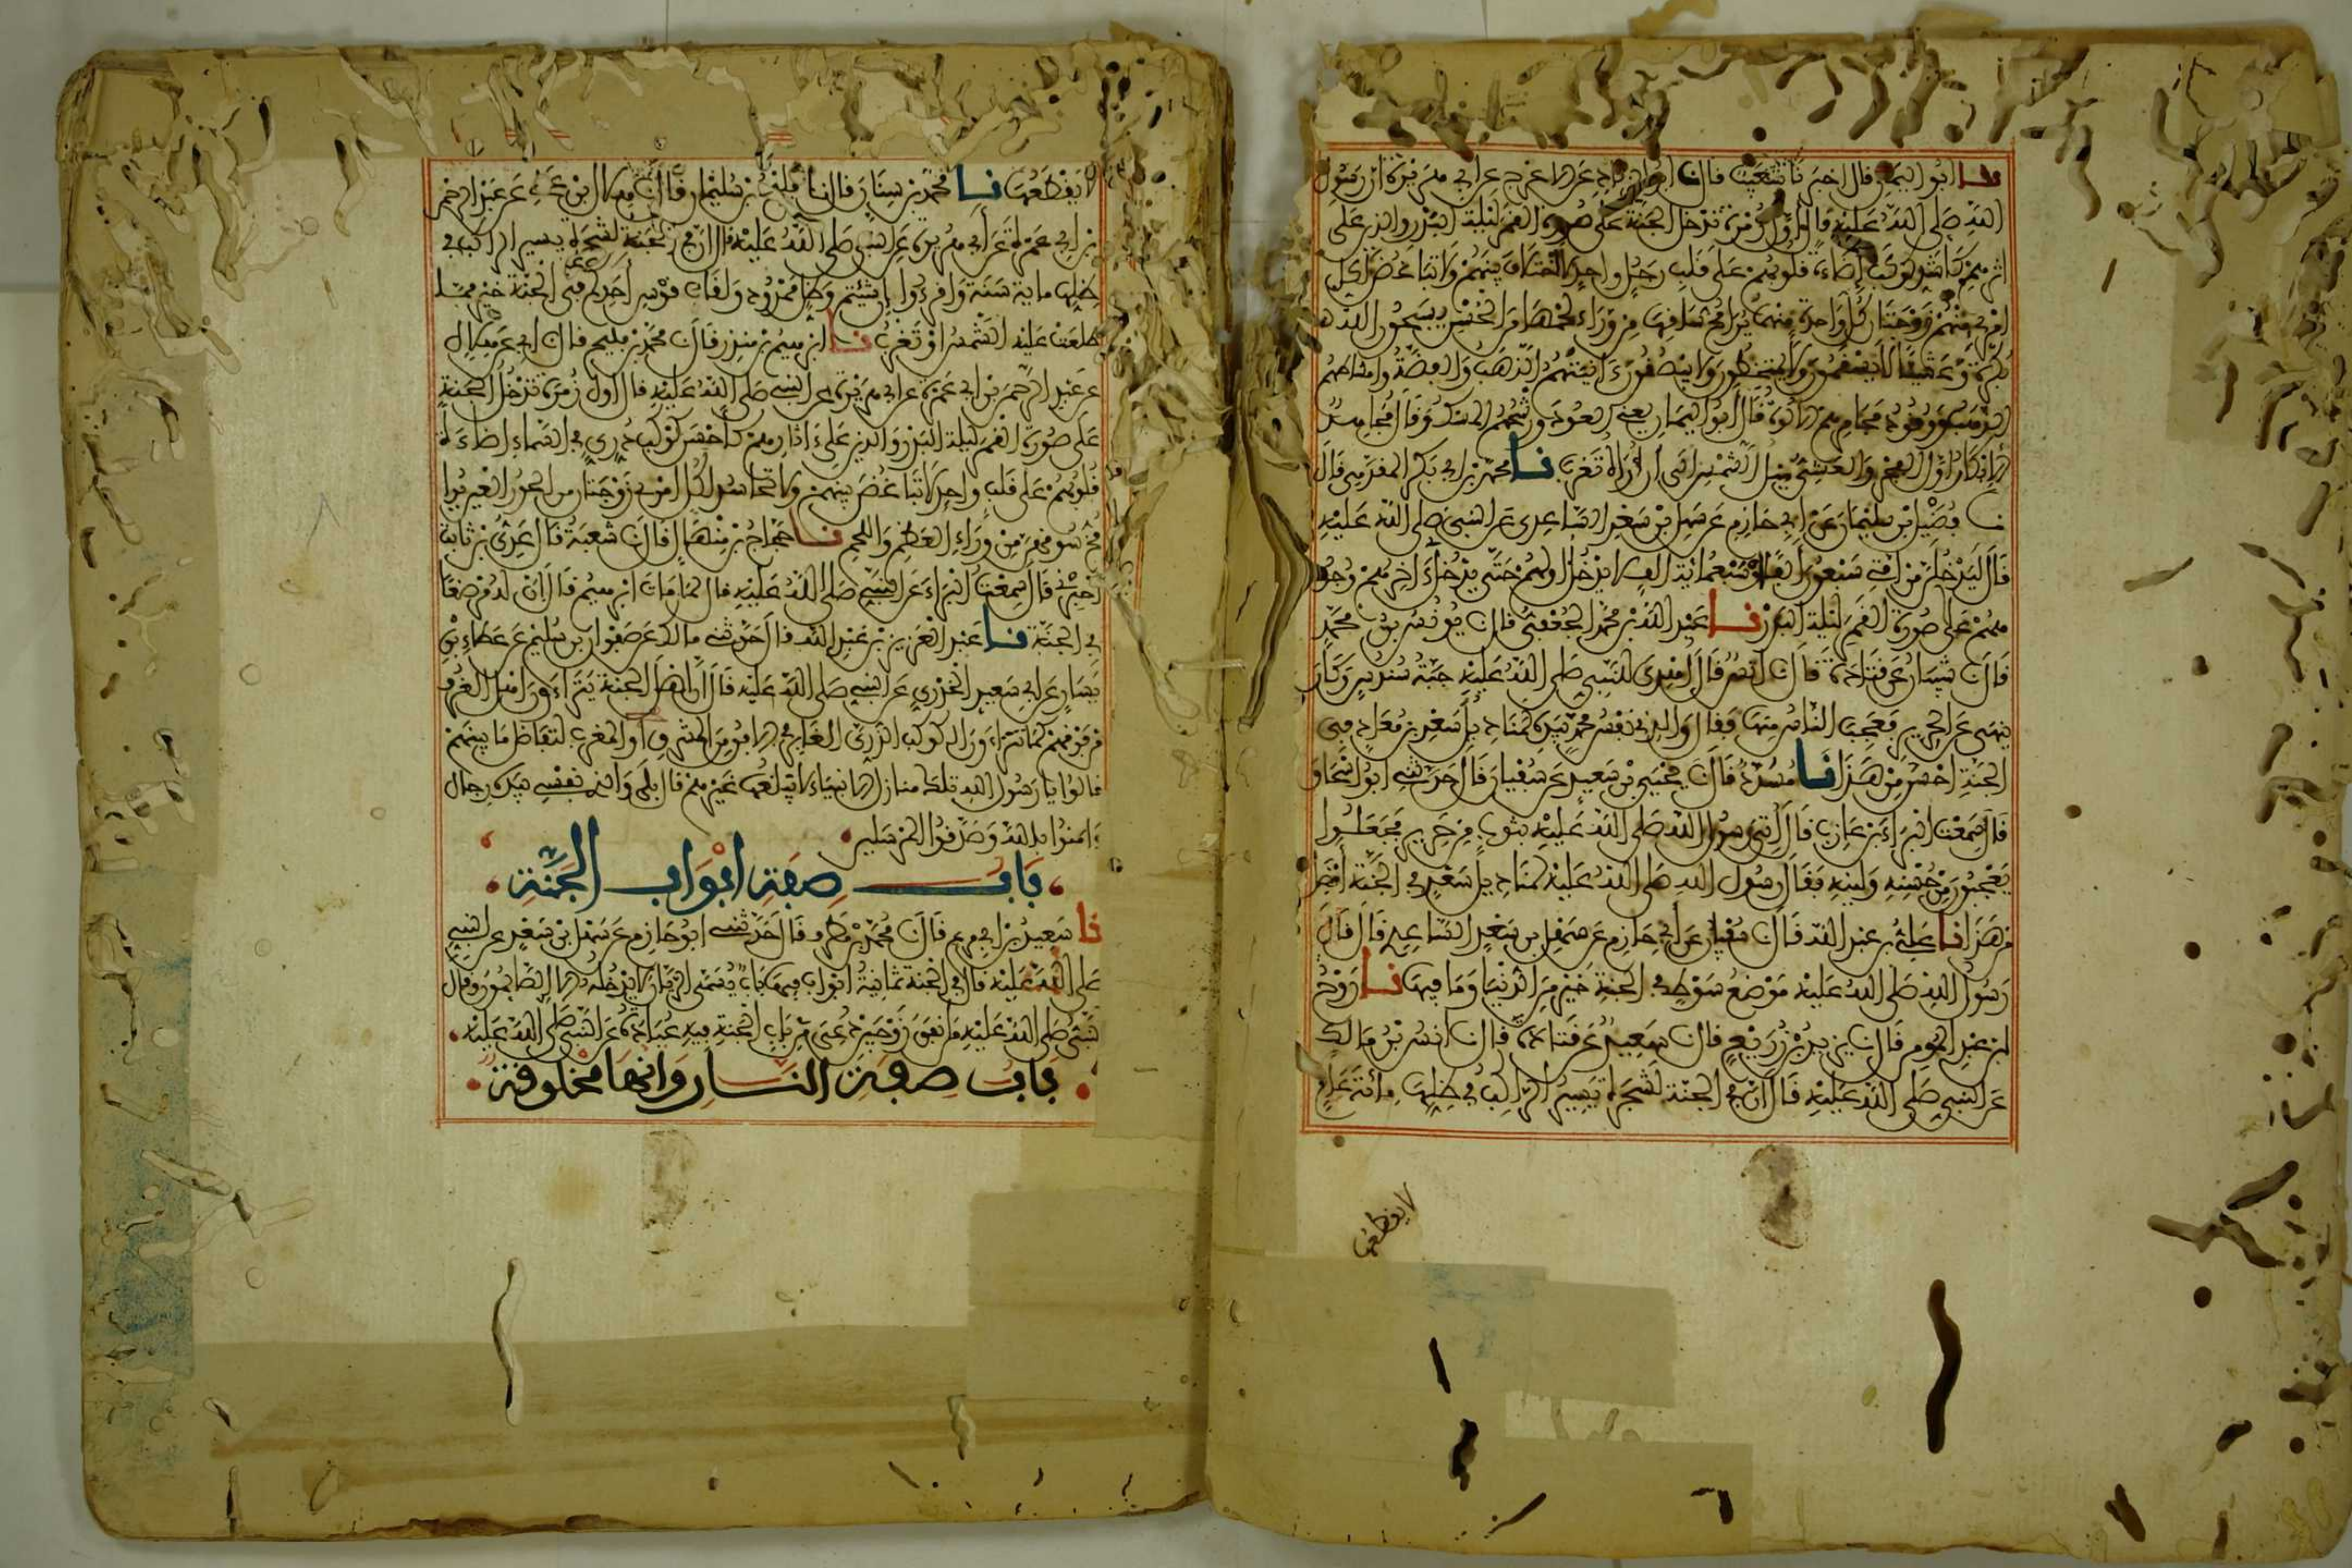 نا ابو اليمان قال اخبرنا شعيب قال نا ابو الزناد عن الاعرج عن ابي هريرة ان رسول
الله صلى الله عليه قال اول زمرة تدخل الجنة على صورة القمر ليلة البدر والذين على
اثرهم كاشد كوكب إضاءة قلوبهم على قلب رجل واحد لا اختلاف بينهم ولا تباغض لكل
امرئ منهم زوجتان كل واحدة منهما يرى مخ ساقها من وراء لحمها من الحسن يسبحون الله
بكرة وعشيا لا يسقمون ولا يمتخطون ولا يبصقون ءانيتهم الذهب والفضة وامشاطهم
الذهب ووقود مجامرهم الالوة قال ابو اليمان يعني العود ورشحهم المسك وقال مجاهد
الابكار اول الفجر والعشي ميل الشمس الى ان اراه تغرب نا محمد بن ابي بكر المقدمي قال
نا فضيل بن سليمان عن ابي حازم عن سهل بن سعد الساعدي عن النبي صلى الله عليه
قال ليدخلن من امتي سبعون الفا او سبعمائة الف لا يدخل اولهم حتى يدخل ءاخرهم وجوههم
على صورة القمر ليلة البدر نا عبد الله بن محمد الجعفي قال نا يونس بن محمد
قال نا شيبان عن قتادة قال نا انس قال اهدي للنبي صلى الله عليه جبة سندس وكان
ينهى عن الحرير فعجب الناس منها فقال والذي نفس محمد بيده لمناديل سعد بن معاذ في
الجنة احسن من هذا نا مسدد قال نا يحيى بن سعيد عن سفيان قال حدثني ابو اسحاق
قال سمعت البراء بن عازب قال اتي رسول الله صلى الله عليه بثوب من حرير فجعلوا
يعجبون من حسنه ولينه فقال رسول الله صلى الله عليه لمناديل سعد في الجنة افضل
من هذا نا علي بن عبد الله قال نا سفيان عن ابي حازم عن سهل بن سعد الساعدي قال قال
رسول الله صلى الله عليه موضع سوط في الجنة خير من الدنيا وما فيها نا روح
ابن عبد المومن قال نا يزيد بن زريع قال نا سعيد عن قتادة قال نا انس بن مالك
عن النبي صلى الله عليه قال ان في الجنة لشجرة يسير الراكب في ظلها مائة عام
لا يقطعها
لا يقطعها نا محمد بن سنان قال نا فليح بن سليمان قال نا هلال بن علي عن عبد الرحمن
بن ابي عمرة عن ابي هريرة عن النبي صلى الله عليه قال ان في الجنة لشجرة يسير الراكب في
ظلها ماية سنة وافرءوا ان شئتم وظل ممدود ولقاب قوس احدكم في الجنة خير مما
طلعت عليه الشمس او تغرب نا ابرهيم بن منذر قال نا محمد بن فليح قال نا ابي عن هلال
عن عبد الرحمن بن ابي عمرة عن ابي هريرة عن النبي صلى الله عليه قال اول زمرة تدخل الجنة
على صورة القمر ليلة البدر والذين على ءاثارهم كاحسن كوكب دري في السماء إضاءة
قلوبهم على قلب واحد لا تباغض بينهم ولا تحاسد لكل امرئ زوجتان من الحور العين يرى
مخ سوقهن من وراء العظم واللحم نا حجاج بن منهال قال نا شعبة قال عدي بن ثابت
اخبرني قال سمعت البراء عن النبي صلى الله عليه قال لما مات ابرهيم قال ان له مرضعا
في الجنة نا عبد العزيز بن عبد الله قال حدثني مالك عن صفوان بن سليم عن عطاء بن
يسار عن ابي سعيد الخدري عن النبي صلى الله عليه قال ان اهل الجنة يتراءون اهل الغرف
من فوقهم كما تتراءون الكوكب الدري الغابر في الافق من المشرق او المغرب لتفاضل ما بينهم
قالوا يا رسول الله تلك منازل الانبياء لا يبلغها غيرهم قال بلى والذي نفسي بيده رجال
ءامنوا بالله وصدقوا المرسلين
باب صفة ابواب الجنة
نا سعيد بن ابي مريم قال نا محمد بن مطرف قال حدثني ابو حازم عن سهل بن سعد عن النبي
صلى الله عليه قال في الجنة ثمانية ابواب فيها باب يسمى الريان لا يدخله الا الصايمون وقال
النبي صلى الله عليه من انفق زوجين دعي من باب الجنة فيه عبادة عن النبي صلى الله عليه
باب صفة النار وانها مخلوقة